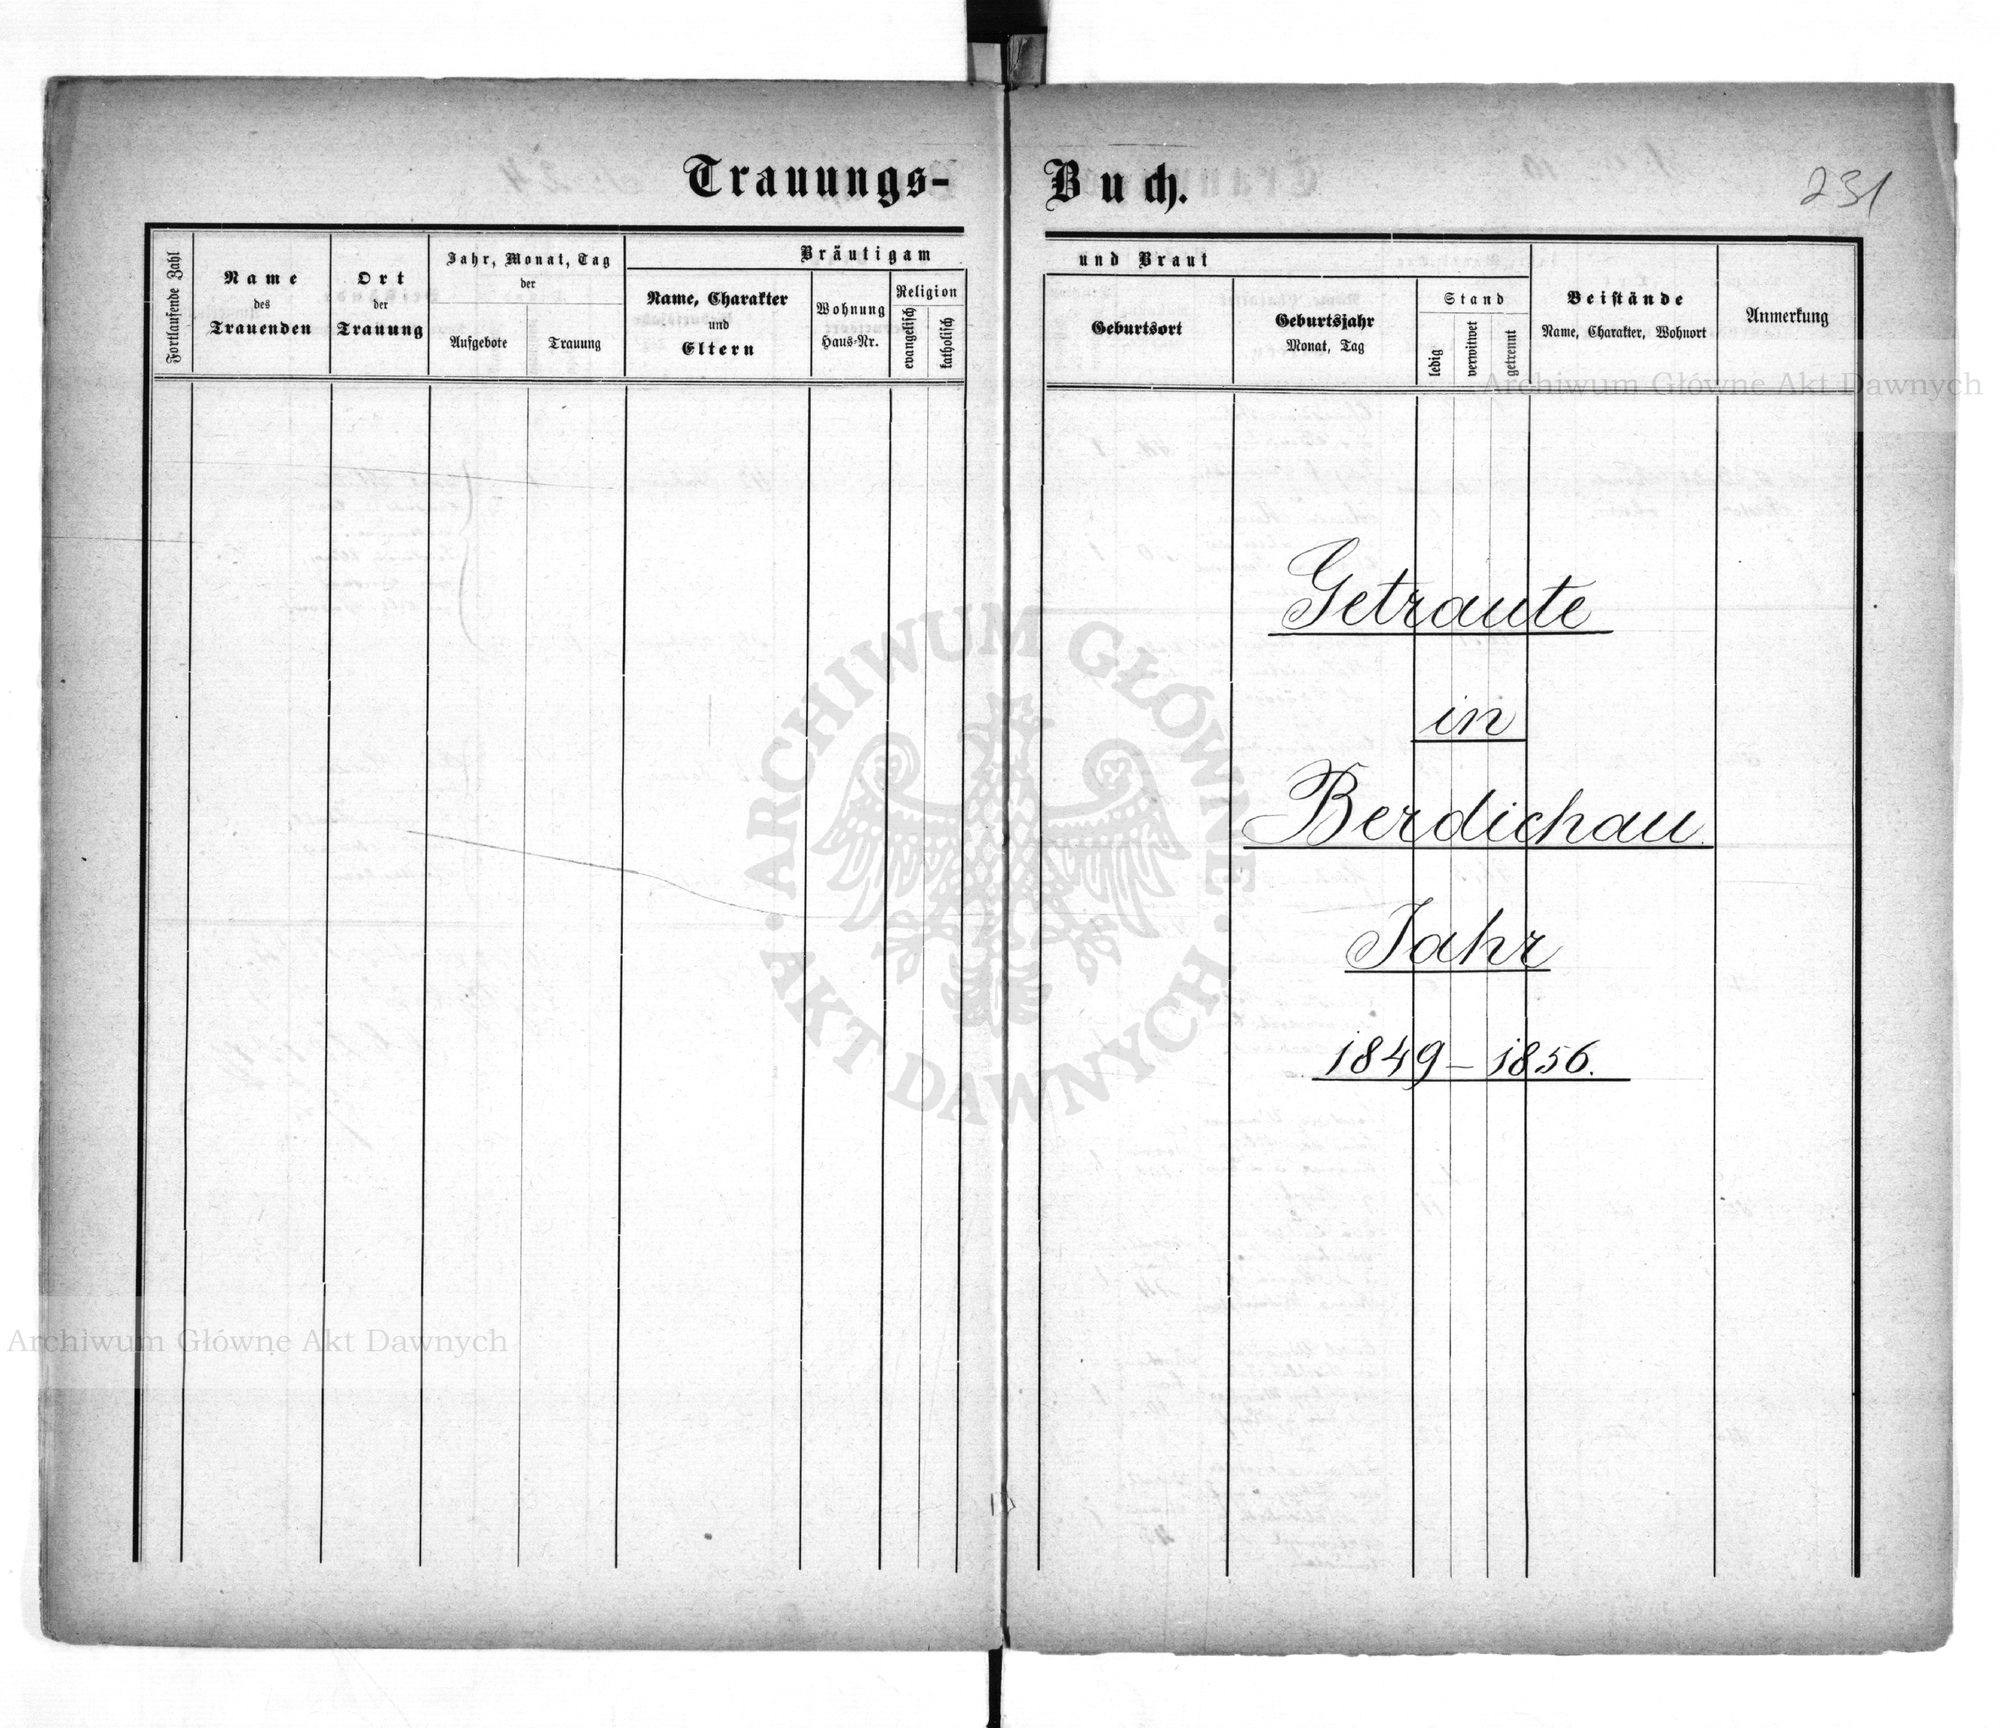 Trauungs-Buch.
231
Fortlaufende Zahl
Name
des
Trauenden
Ort
der
Trauung
Jahr, Monat, Tag
der
Aufgebote
Trauung
Bräutigam
Name, Charakter
und
Eltern
Wohnung
Haus-Nr.
Religion
evangelisch
katholisch
und Braut
Geburtsort
Geburtsjahr
Monat, Tag
Stand
ledig
verwitwet
getrennt
Beistände
Name, Charakter, Wohnort
Anmerkung
Archiwum Główne Akt Dawnych
Getraute
in
Berdichau
Jahr
1849-1856.
ARCHIWUM GŁÓWNE
AKT DAWNYCH
Archiwum Główne Akt Dawnych